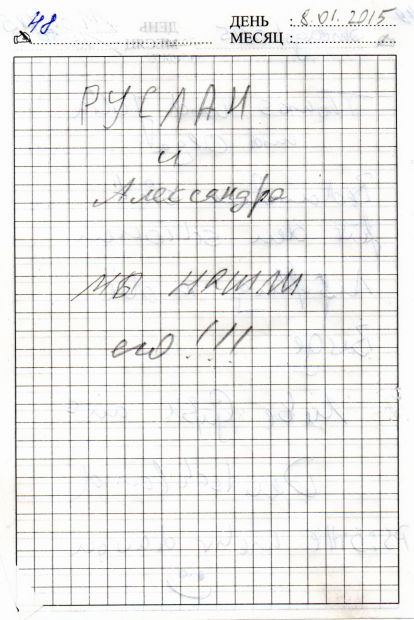 48
ДЕНЬ : 8.01.2015
МЕСЯЦ :
РУСЛАН
и
Александра
мы нашли
его!!!